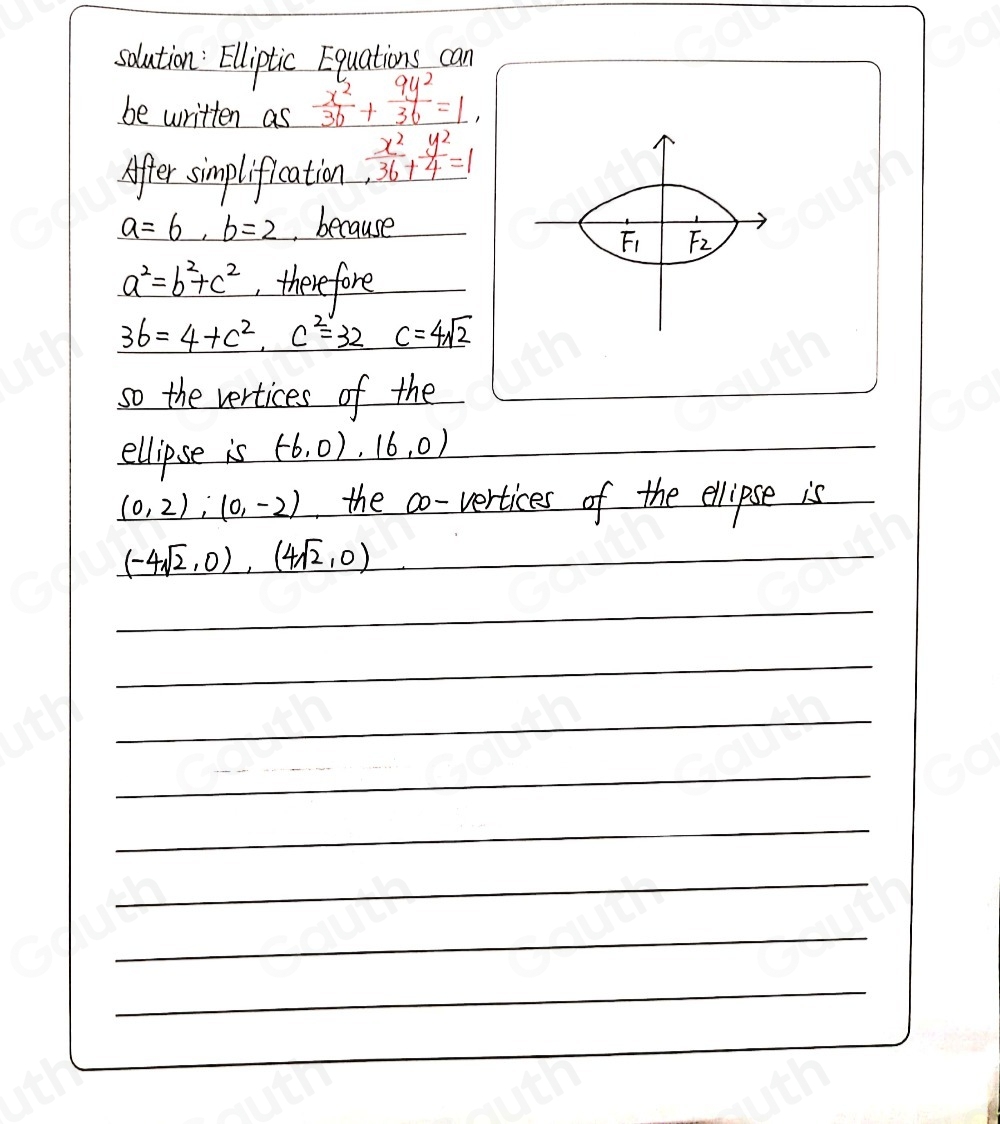 solution: Elliptic Equations can
be written as x²/36 + 9y²/36 = 1,
After simplification, x²/36 + y²/4 = 1
a = 6, b = 2, because
a² = b² + c², therefore
36 = 4 + c², c² = 32 c = 4√2
so the vertices of the
ellipse is (-6,0), (6,0)
(0,2); (0,-2), the co-vertices of the ellipse is
(-4√2,0), (4√2,0).
F1 F2
Gauth